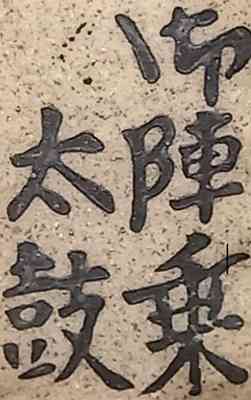 御陣乗
太鼓